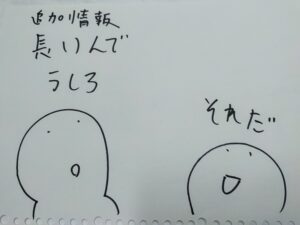 追加情報
長いんで
うしろ
それだ